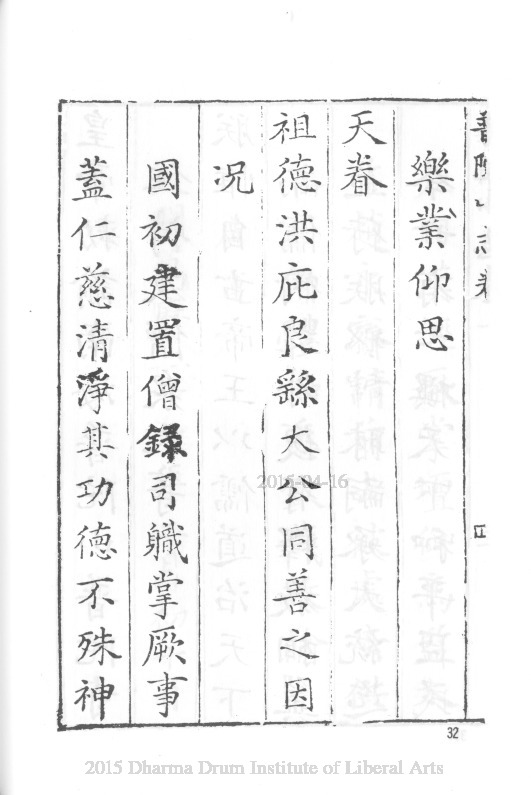 樂業仰思
天眷
祖德洪庇良繇大公同善之因
況
國初建置僧錄司職掌厥事
蓋仁慈清淨其功德不殊神
2015-04-16
32
2015 Dharma Drum Institute of Liberal Arts